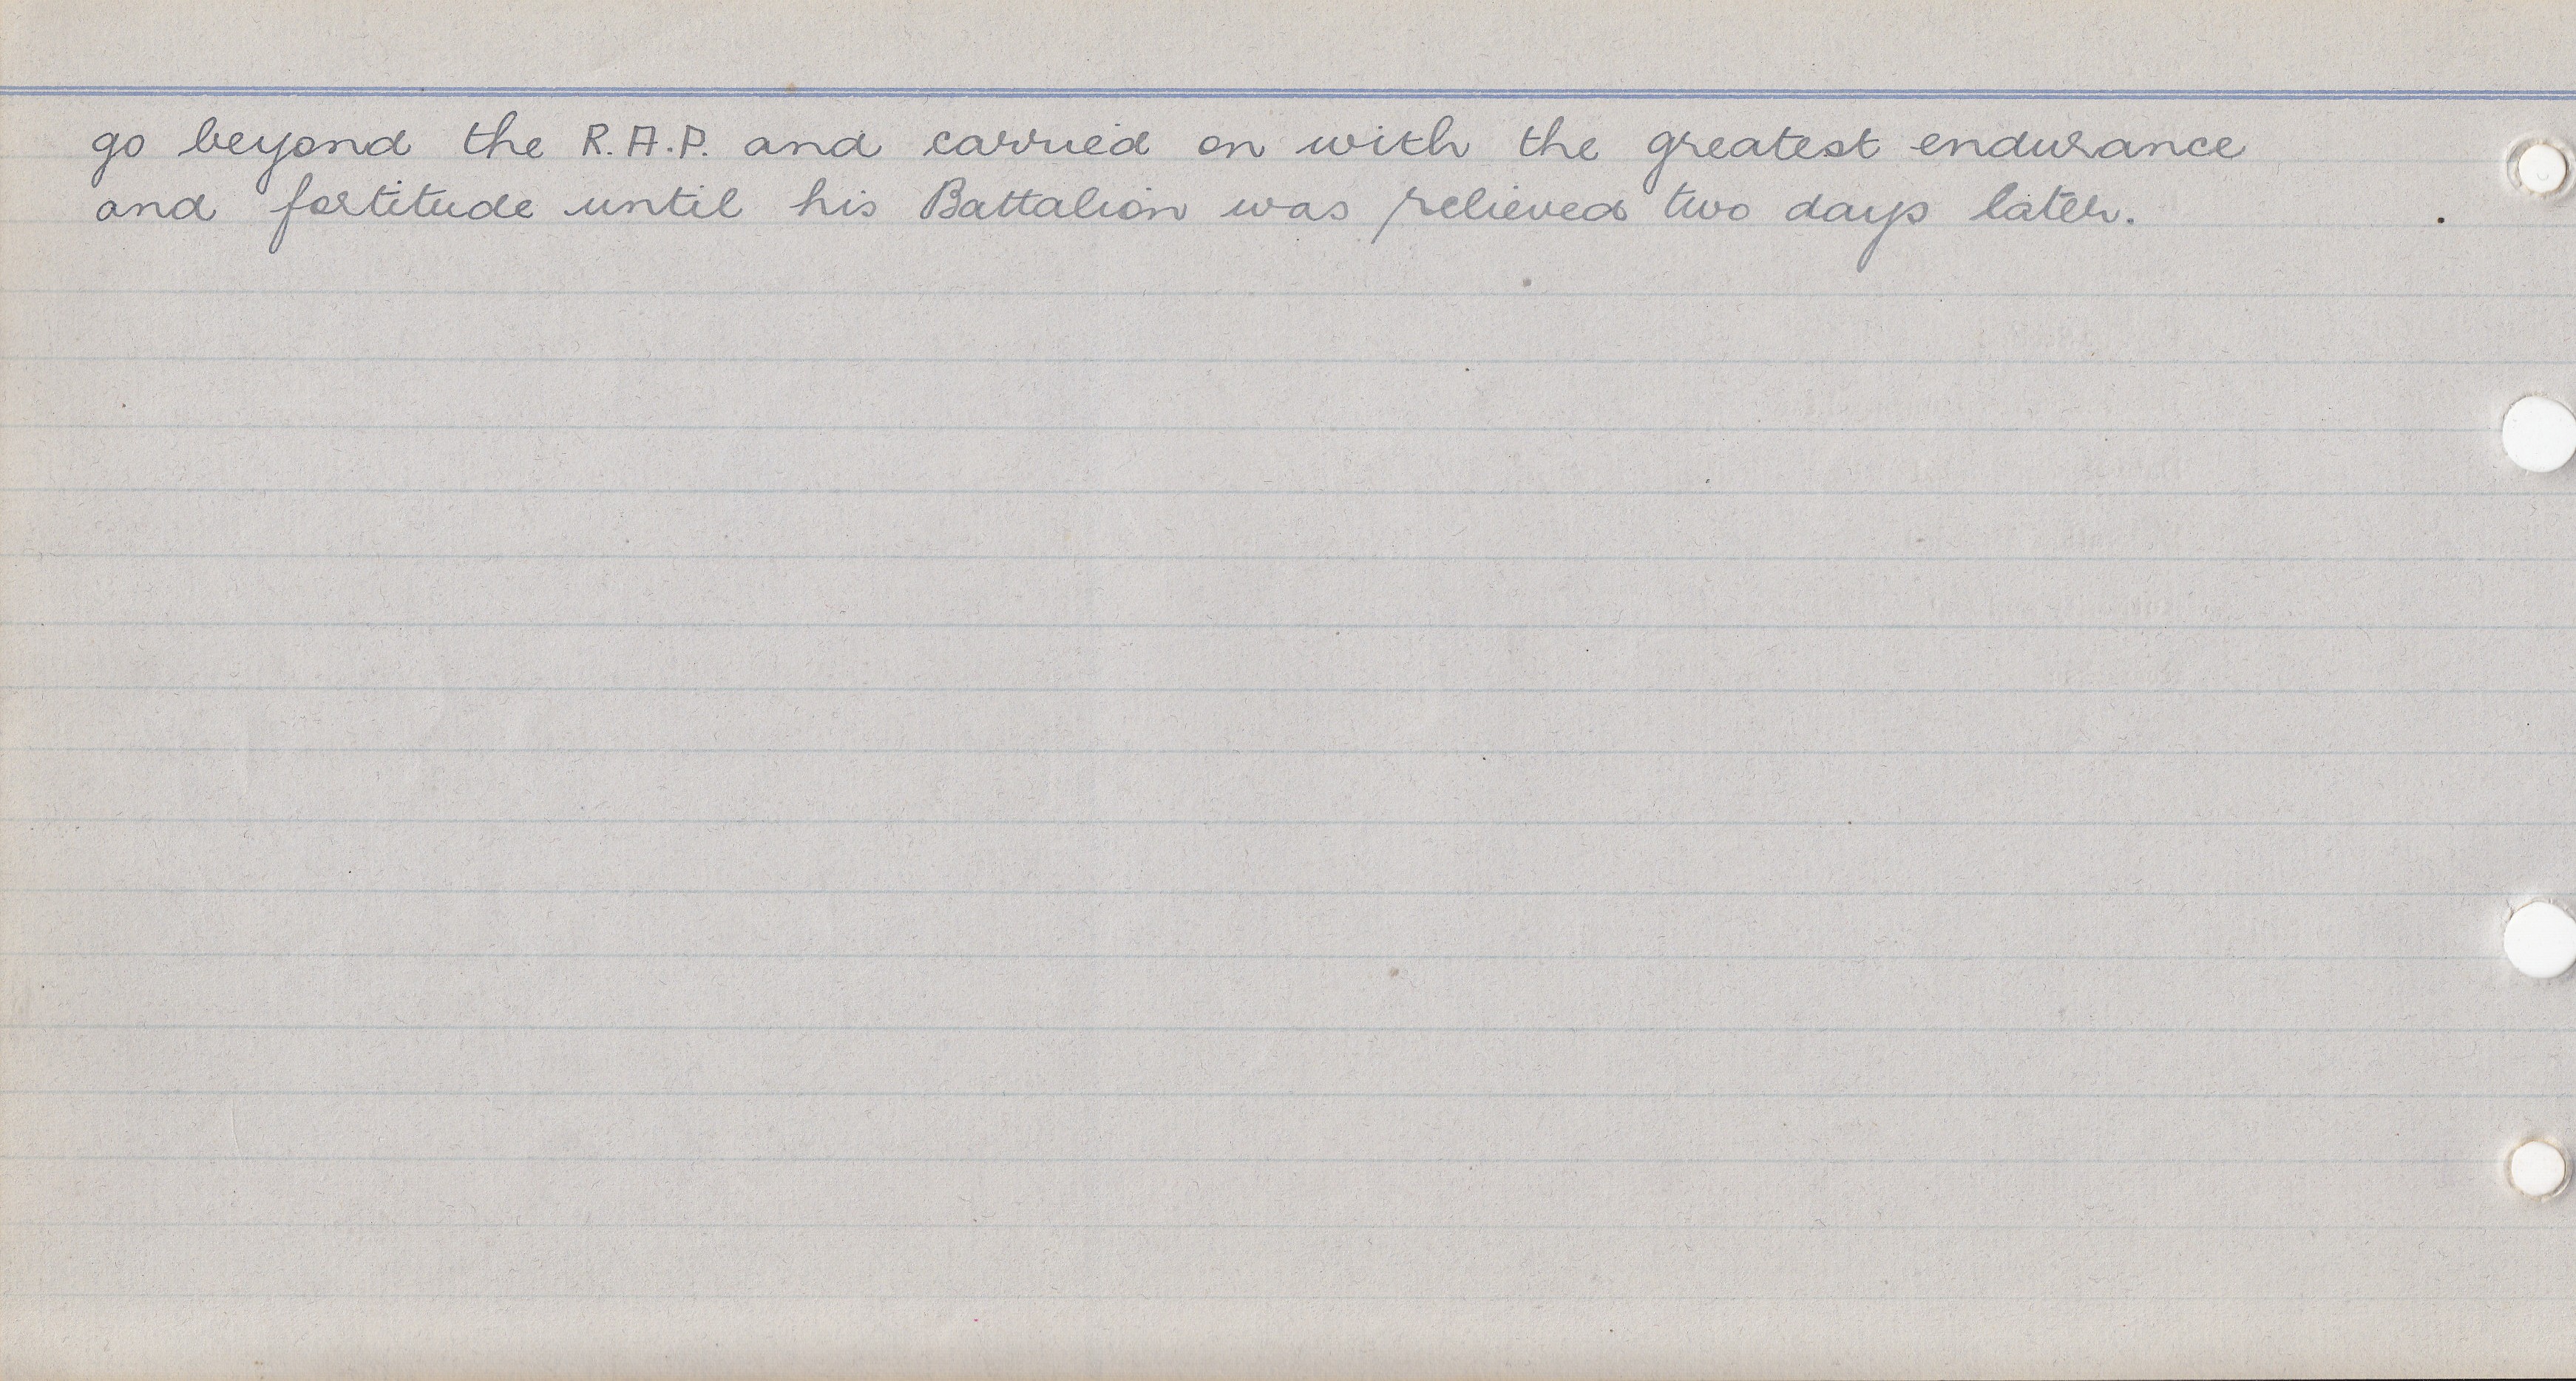 go beyond the R.A.P. and carried on with the greatest endurance
and fortitude until his Battalion was relieved two days later.